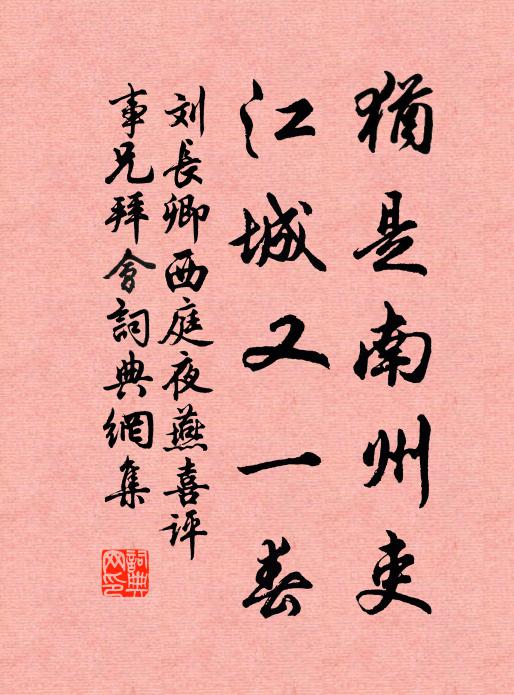 猶是南州吏
江城又一春
刘長卿西庭夜燕喜評
事兄拜會詞典網集
詞典
网印